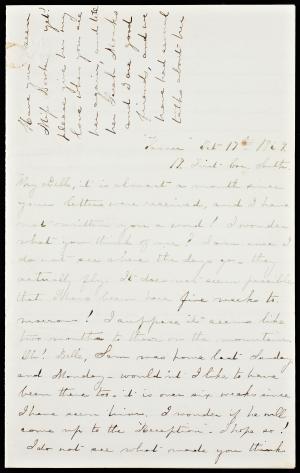 Have you seen
Miss            yet?
please give her my
love when you see
her again, and tell
her Sarah Brooks
and I are good
friends, and we
have had several
talks about her
"Terrace" Oct 17th 1869.
17. First Cor. South,
My Dell, it is almost a month since
your letters were received, and I have
not written you a word! I wonder
what you think of me? I am sure I
do not see where the days go, they
actually fly. It does not seem possible
that I have been here five weeks to-
morrow! I suppose it seems like
two months to them on the mountain.
Oh! Dell, Sam was home last Sunday
and Monday - wouldn't I like to have
been there too, it is over six weeks since
I have seen him. I wonder if he will
come up to the Reception. I hope so!
I do not see what made you think